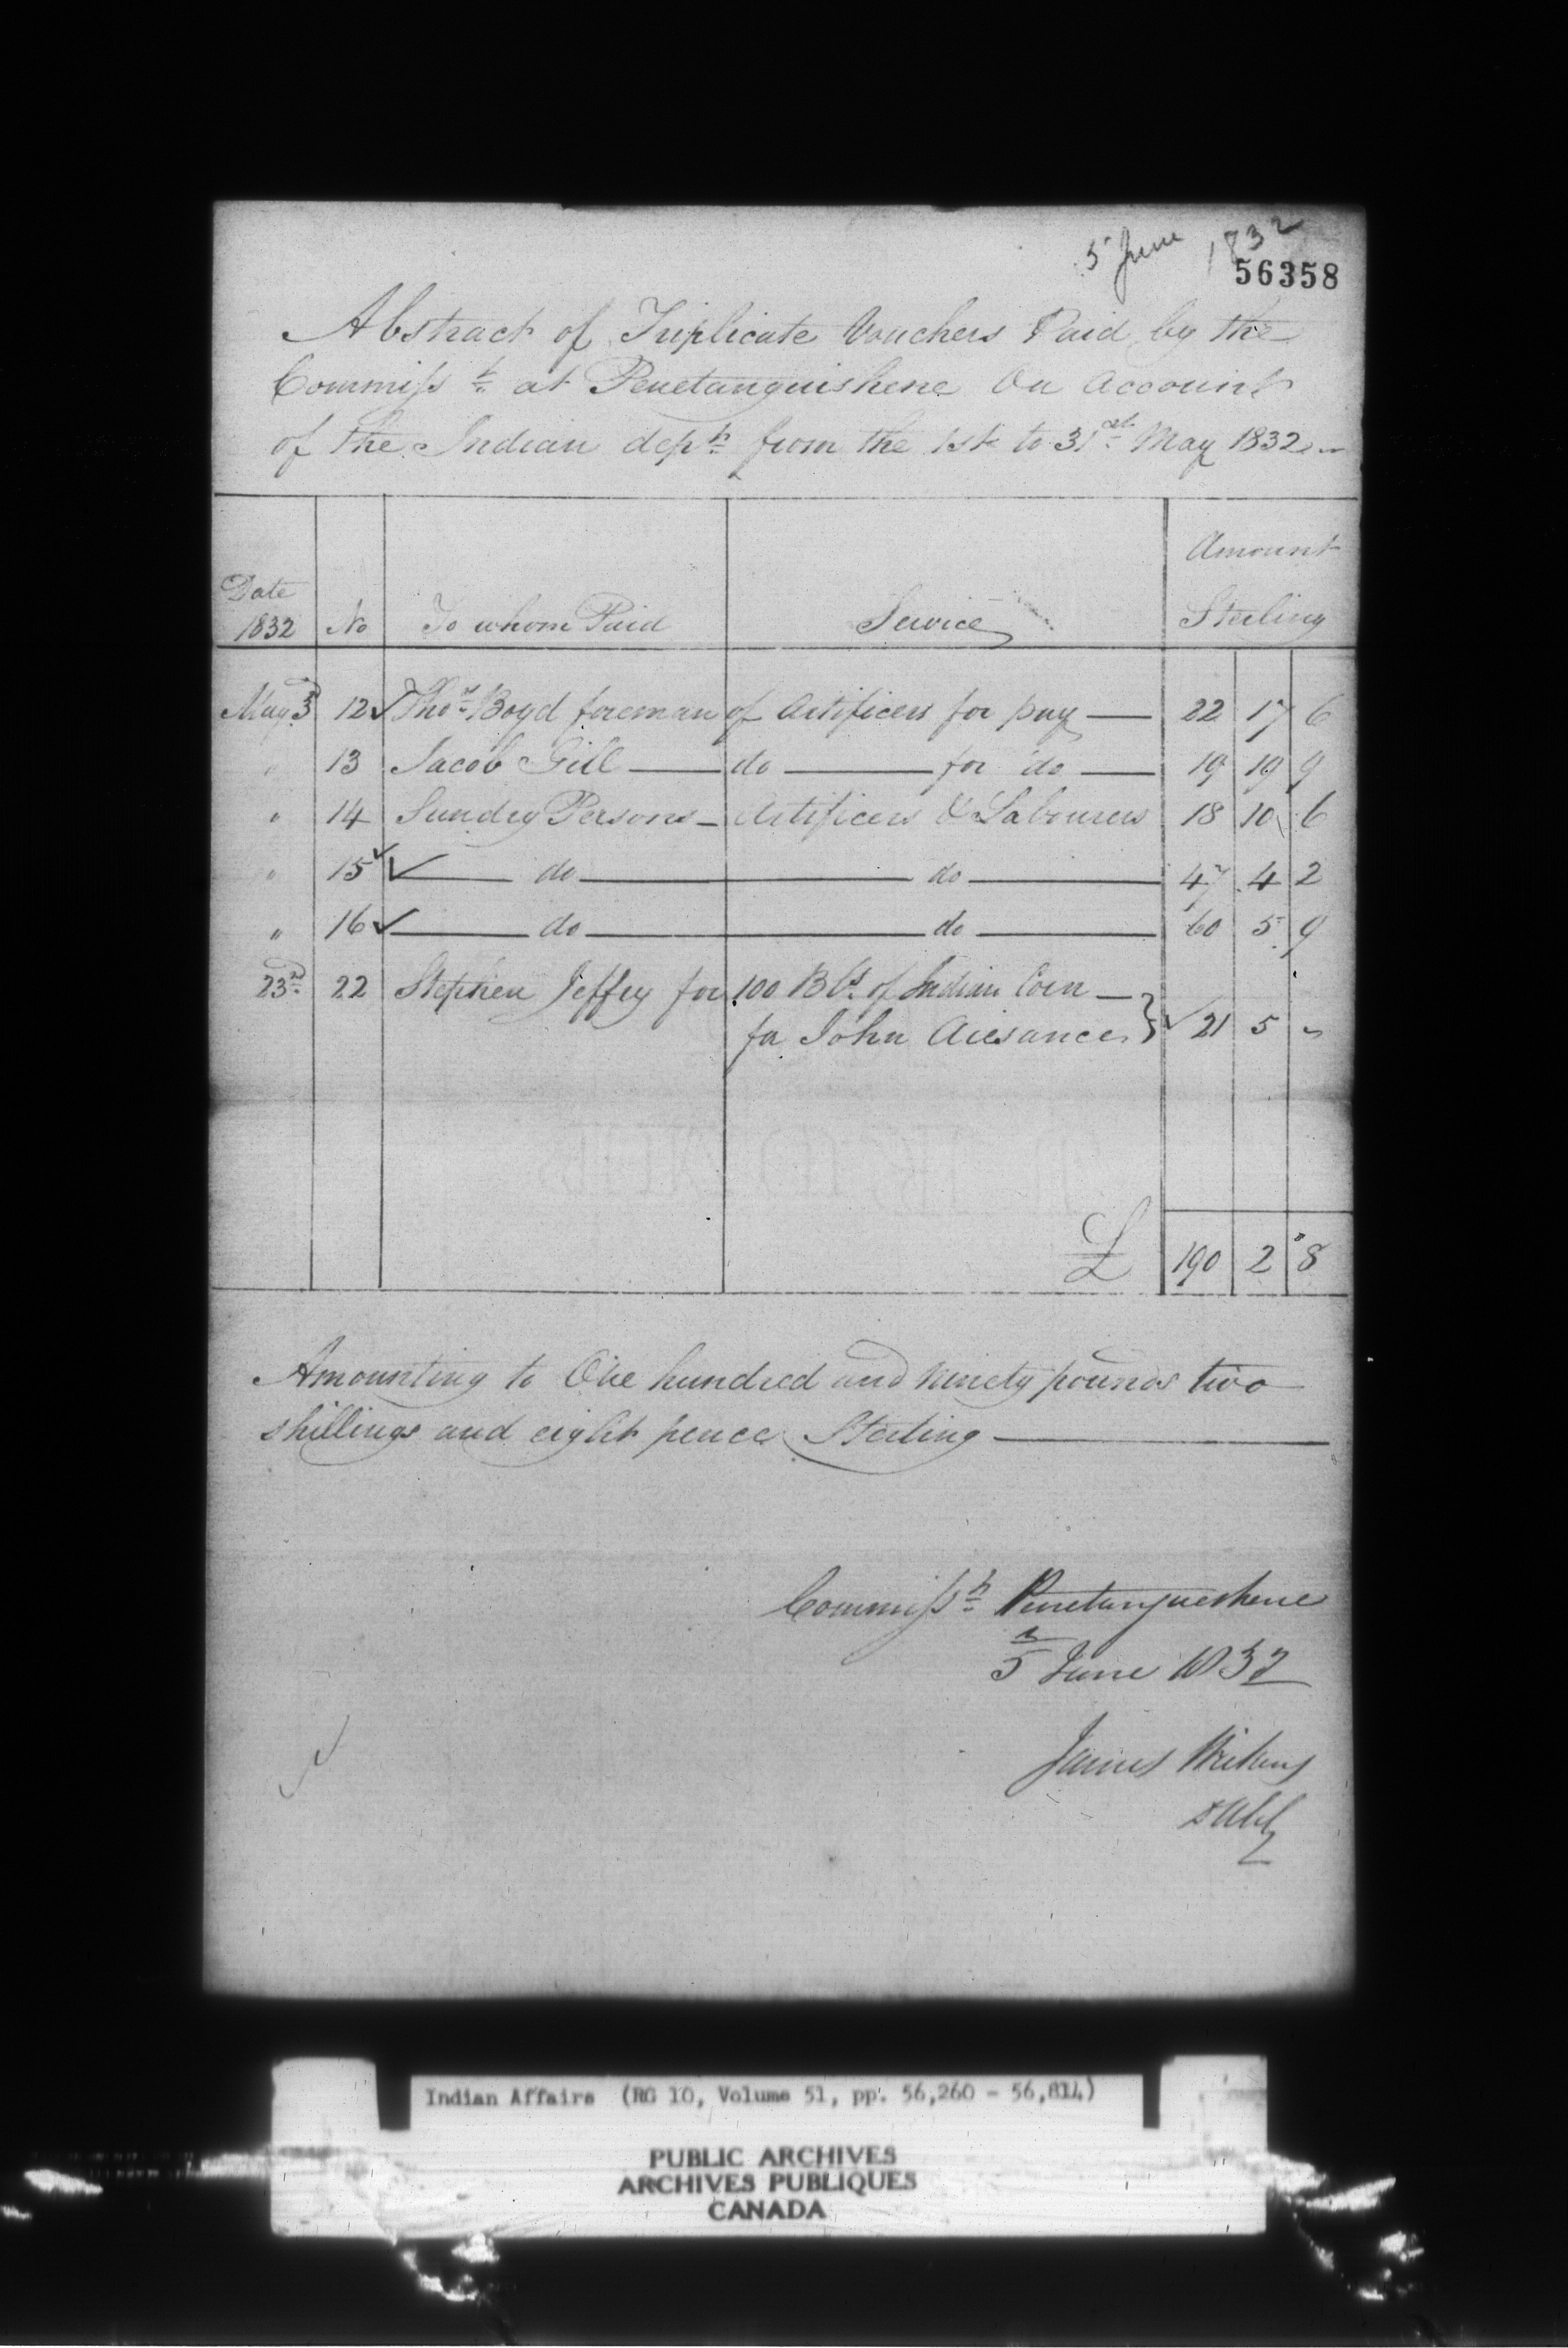 5 June 1832
56358
Abstract of Triplicate Vouchers Paid by the
Commisst at Penetanguishene On Account
of the Indian dept from the 1st to 31st May 1832
Amount
Date
1832 No To whom Paid Service Sterling
May 3d 12 Thos Boyd foreman of Artificers for pay 22 17 6
" 13 Jacob Gill do for do 19 19 9
" 14 Sundry Persons Artificers & Labourers 18 10 6
" 15 do do 47 4 2
" 16 do do 60 5 9
23d 22 Stephen Jeffry for 100 Bls of Indian Corn
for John Aisance 21 5 "
£ 190 2 8
Amounting to One hundred and Ninety pounds two
shillings and eight pence Sterling
Commisst Penetanguishene
5 June 1832
James
Indian Affairs (RG 10, Volume 51, pp. 56,260 - 56,814)
PUBLIC ARCHIVES
ARCHIVES PUBLIQUES
CANADA